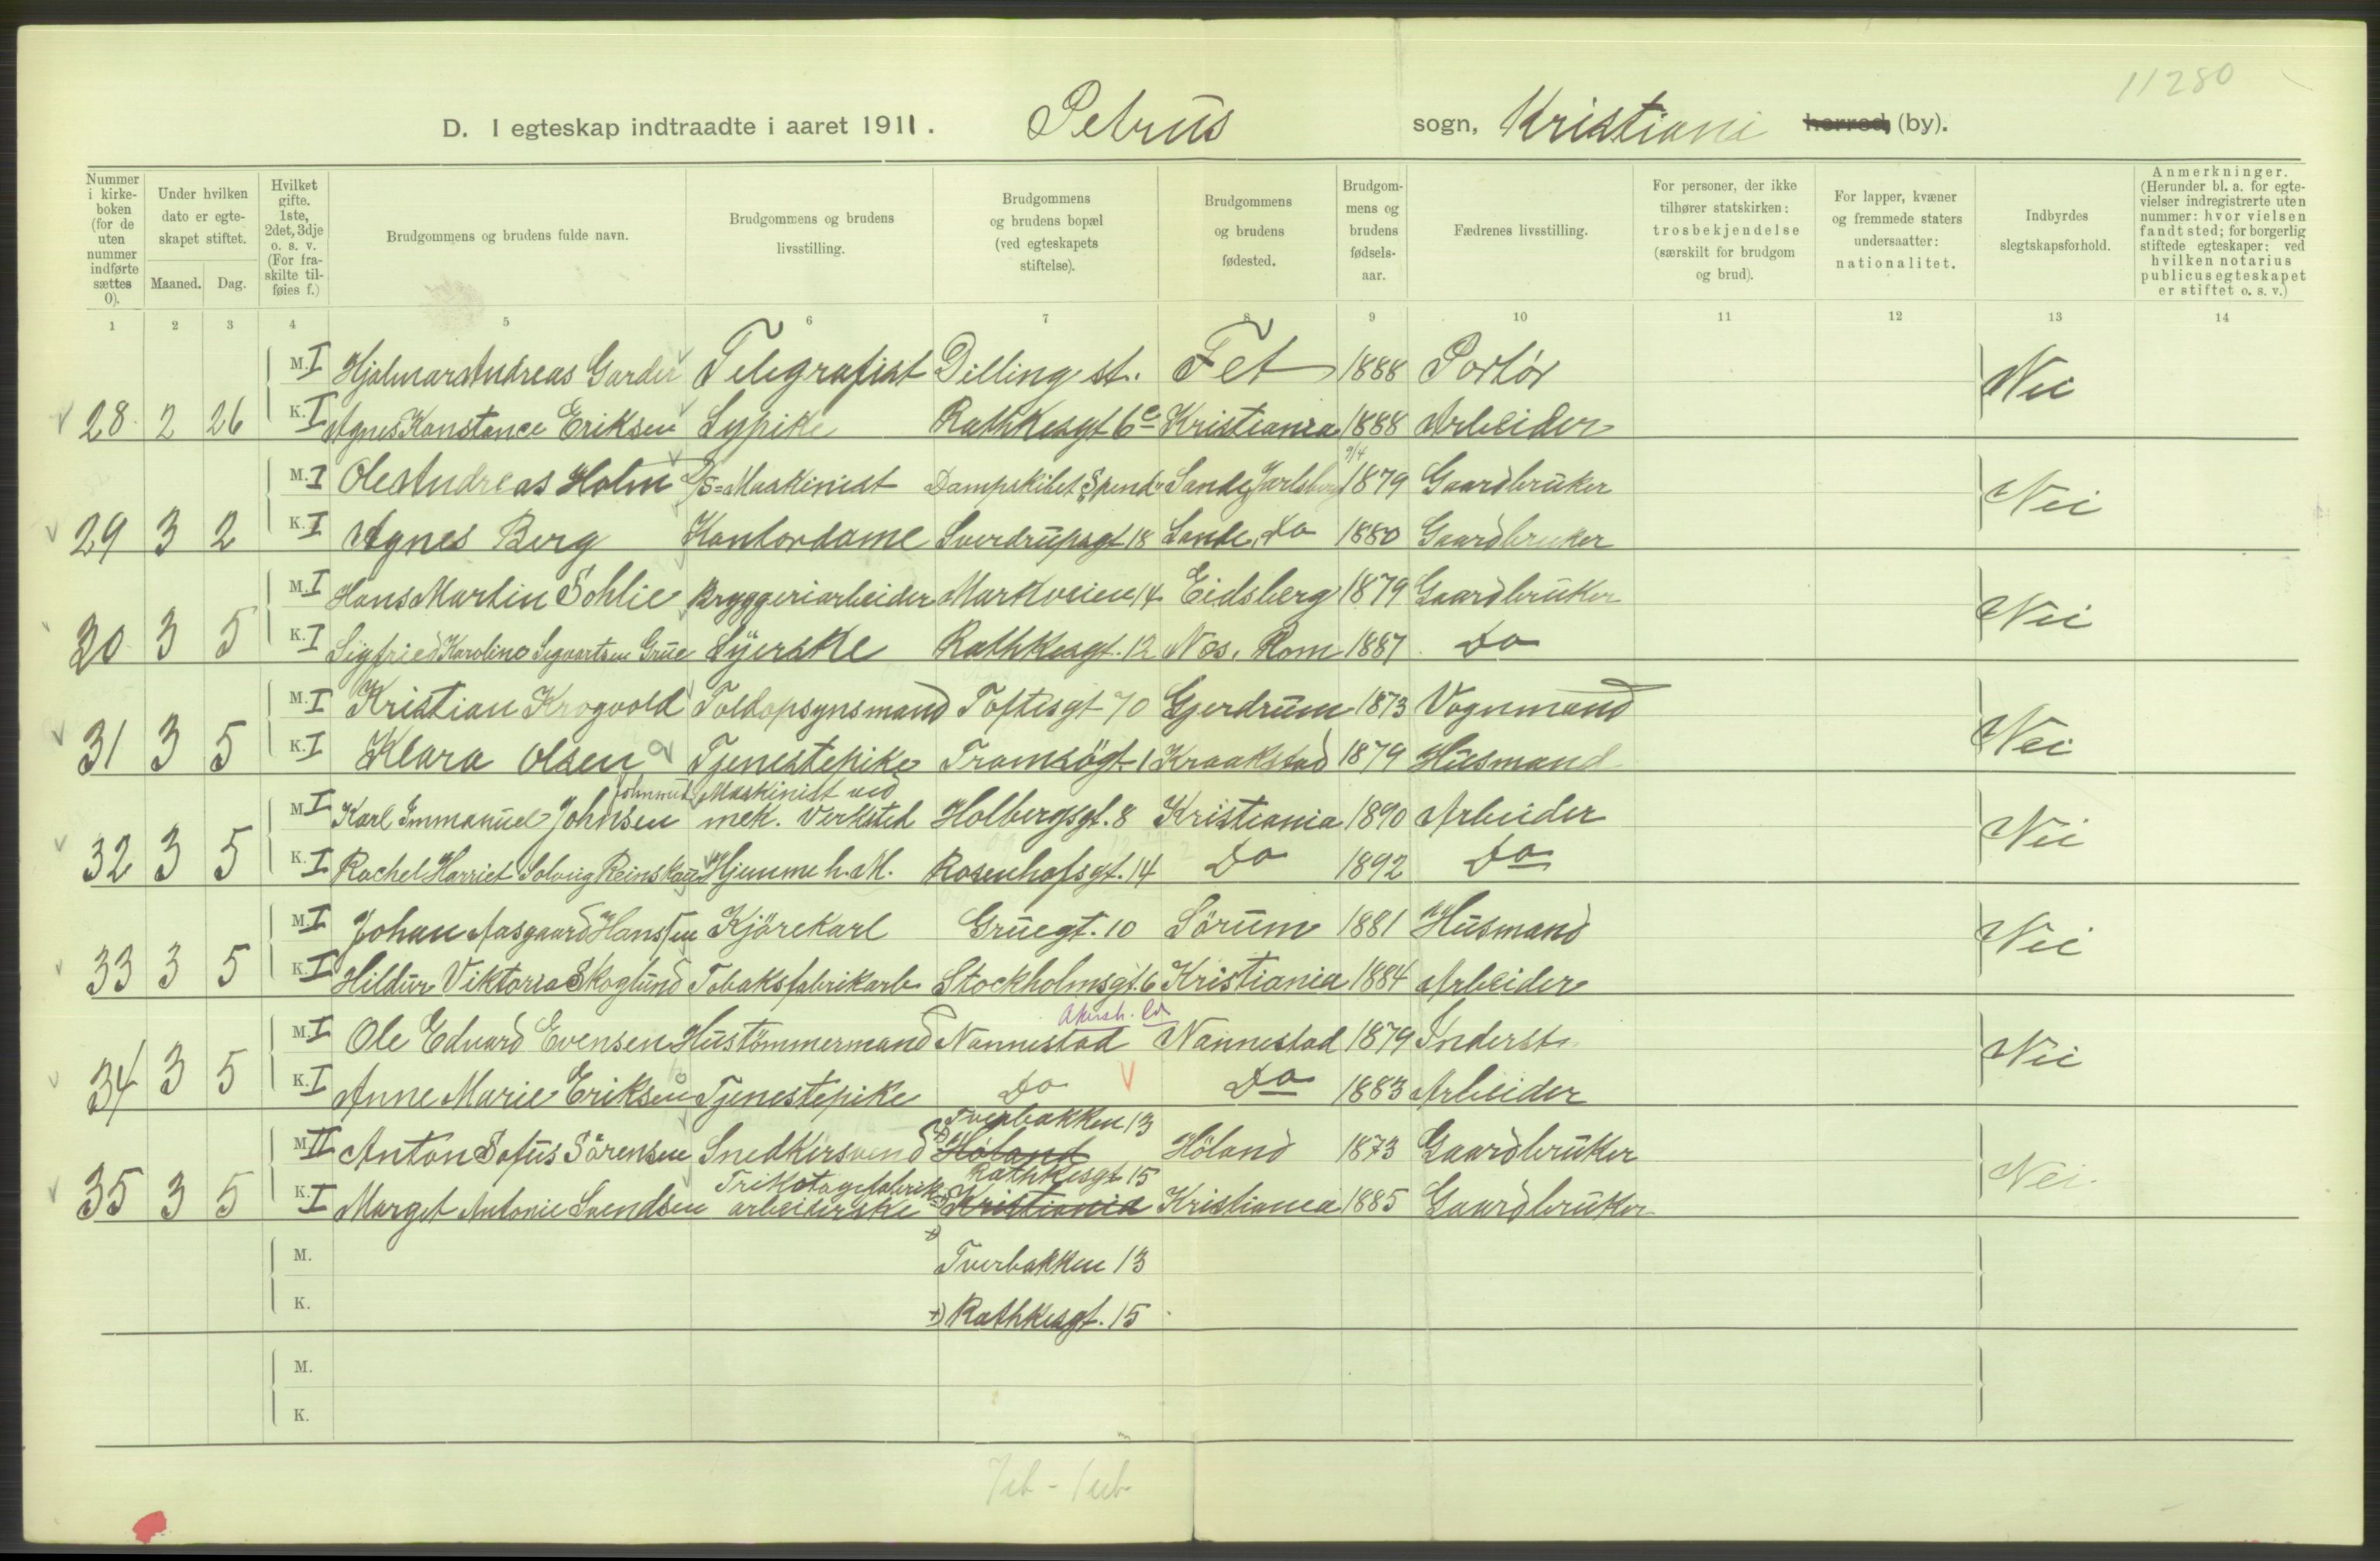 11280
D. I egteskap indtraadte i aaret 1911. Petrus sogn, Kristiani herred, (by).
Nummer i kirke-boken (for de uten nummer indførte sættes 0).
Under hvilken dato er egte-skapet stiftet.
Maaned. Dag.
Hvilket gifte. 1ste, 2det, 3dje o. s. v. (For fra-skilte til-føies f.)
Brudgommens og brudens fulde navn.
Brudgommens og brudens livsstilling.
Brudgommens og brudens bopæl (ved egteskapets stiftelse).
Brudgommens og brudens fødested.
Brudgom-mens og brudens fødsels-aar.
Fædrenes livsstilling.
For personer, der ikke tilhører statskirken: trosbekjendelse (særskilt for brudgom og brud).
For lapper, kvæner og fremmede staters undersaatter: nationalitet.
Indbyrdes slegtskapsforhold.
Anmerkninger. (Herunder bl. a. for egte-vielser indregistrerte uten nummer: hvor vielsen fandt sted; for borgerlig stiftede egteskaper: ved hvilken notarius publicus egteskapet er stiftet o. s. v.)
1 2 3 4 5 6 7 8 9 10 11 12 13 14
M. I Hjalmar Andreas Garder Telegrafist Dilling st. Fet 1888 Portör Nei
28 2 26 K. I Agnes Konstance Eriksen Sypike Rathkesgt 6c Kristiania 1888 Arbeider
9/4
M. I Ole Andreas Holm D/S=Maskinist Dampskibet Spend Sande Jarlsberg 1879 Gaardbruker Nei
29 3 2 K. I Agnes Berg Kontordame Sverdrupsgt 18 Sande, do 1880 Gaardbruker
M. I Hans Martin Sohlie Bryggeriarbeider Markveien 14 Eidsberg 1879 Gaardbruker Nei
30 3 5 K. I Sigfried Karoline Segvartsen Grue Syerske Rathkesgt. 12 Nes, Rom 1887 do
M. I Kristian Krogvold Toldopsynsmand Toftesgt 70 Gjerdrum 1873 Vognmand Nei
31 3 5 K. I Klara Olsen Tjenestepike Tromsögt. 1 Kraakstad 1879 Husmand
Johnsrud Maskinist ved
M. I Karl Immanuel Johnsen mek. Verksted Holbergsgt. 8 Kristiania 1890 Arbeider Nei
32 3 5 K. I Rachel Harriet Solveig Reinskou Hjemme h. M. Rosenhofsgt. 14 Do 1892 Do
M. I Johan Aasgaard Hansen Kjörekarl Gruegt. 10 Sörum 1881 Husmand Nei
33 3 5 K. I Hildur Viktoria Skoglund Tobaksfabrikarb Stockholmsgt. 6 Kristiania 1884 Arbeider
Akersh.
M. I Ole Edvard Evensen Hustömmermand Nannestad Nannestad 1879 Inderst Nei
34 3 5 K. I Anne Marie Eriksen Tjenestepike Do Do 1883 Arbeider
Tverbakken 13
M. II Anton Sofus Sörensen Snedkersvend Höland Höland 1873 Gaardbruker Nei
Trikotagefabrik Rathkesgt 15
35 3 5 K. I Marget Antonie Svendsen arbeiderske Kristiania Kristiania 1885 Gaardbruker
M. Tverbakken 13
K. Rathkesgt. 15
M.
K.